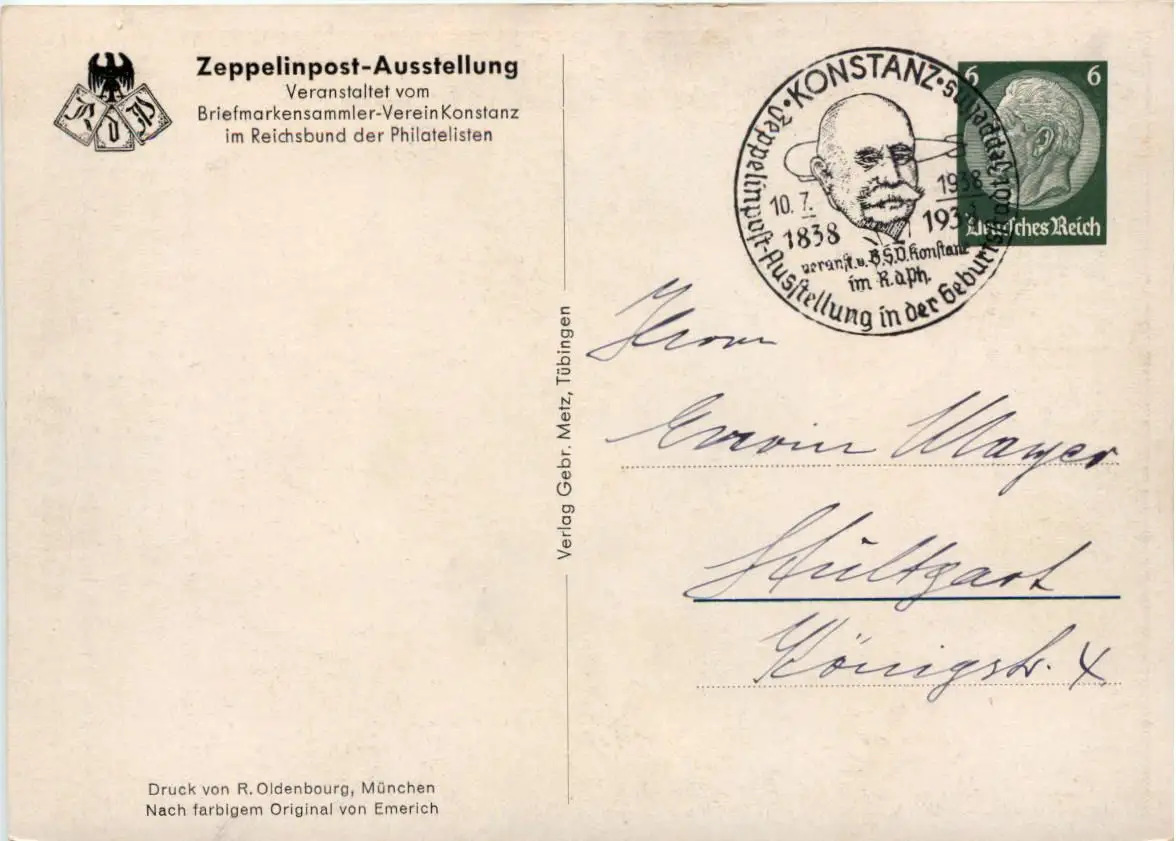 Zeppelinpost-Ausstellung
Veranstaltet vom
Briefmarkensammler-Verein Konstanz
im Reichsbund der Philatelisten
R d P
KONSTANZ
Zeppelinpost-Ausstellung in der Geburtsstadt Zeppelins
10. 7. 1938
1838 1938
veranst. v. B.S.V. Konstanz
im R.d.Ph.
6 6
Deutsches Reich
Herrn
Erwin Mayer
Stuttgart
Königstr. 4
Verlag Gebr. Metz, Tübingen
Druck von R. Oldenbourg, München
Nach farbigem Original von Emerich